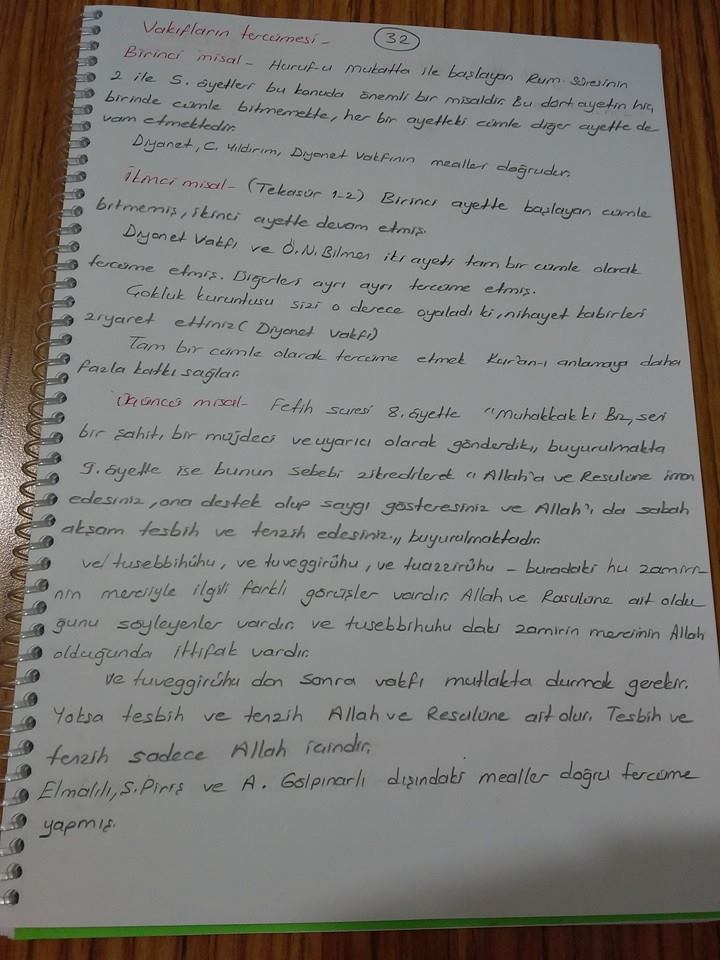 Vakıfların tercümesi -
32
Birinci misal - Huruf-u mukatta ile başlayan Rum sûresinin
2 ile 5. âyetleri bu konuda önemli bir misaldir. Bu dört ayetin hiç
birinde cümle bitmemekte, her bir ayetteki cümle diğer ayette de
vam etmektedir.
Diyanet, C. Yıldırım, Diyanet Vakfının mealleri doğrudur.
İkinci misal - (Tekasür 1-2) Birinci ayette başlayan cümle
bitmemiş, ikinci ayette devam etmiş.
Diyanet Vakfı ve Ö.N. Bilmen iki ayeti tam bir cümle olarak
tercüme etmiş. Diğerleri ayrı ayrı tercüme etmiş.
Çokluk kuruntusu sizi o derece oyaladı ki, nihayet kabirleri
ziyaret ettiniz (Diyanet Vakfı)
Tam bir cümle olarak tercüme etmek Kur'an-ı anlamaya daha
fazla katkı sağlar.
Üçüncü misal - Fetih suresi 8. âyette "Muhakkak ki Biz, seni
bir şahit, bir müjdeci ve uyarıcı olarak gönderdik,, buyurulmakta
9. âyette ise bunun sebebi zikredilerek "Allah'a ve Resulüne iman
edesiniz, ona destek olup saygı gösteresiniz ve Allah'ı da sabah
akşam tesbih ve tenzih edesiniz.,, buyurulmaktadır.
ve tusebbihûhu, ve tuveggirûhu, ve tuazzirûhu - buradaki hu zamiri-
nin merciyle ilgili farklı görüşler vardır. Allah ve Rasulüne ait oldu
ğunu söyleyenler vardır. ve tusebbihuhu daki zamirin merciinin Allah
olduğunda ittifak vardır.
ve tuveggirûhu dan sonra vakfı mutlakta durmak gerekir.
Yoksa tesbih ve tenzih Allah ve Resulüne ait olur. Tesbih ve
tenzih sadece Allah içindir.
Elmalılı, S. Piriş ve A. Gölpınarlı dışındaki mealler doğru tercüme
yapmış.